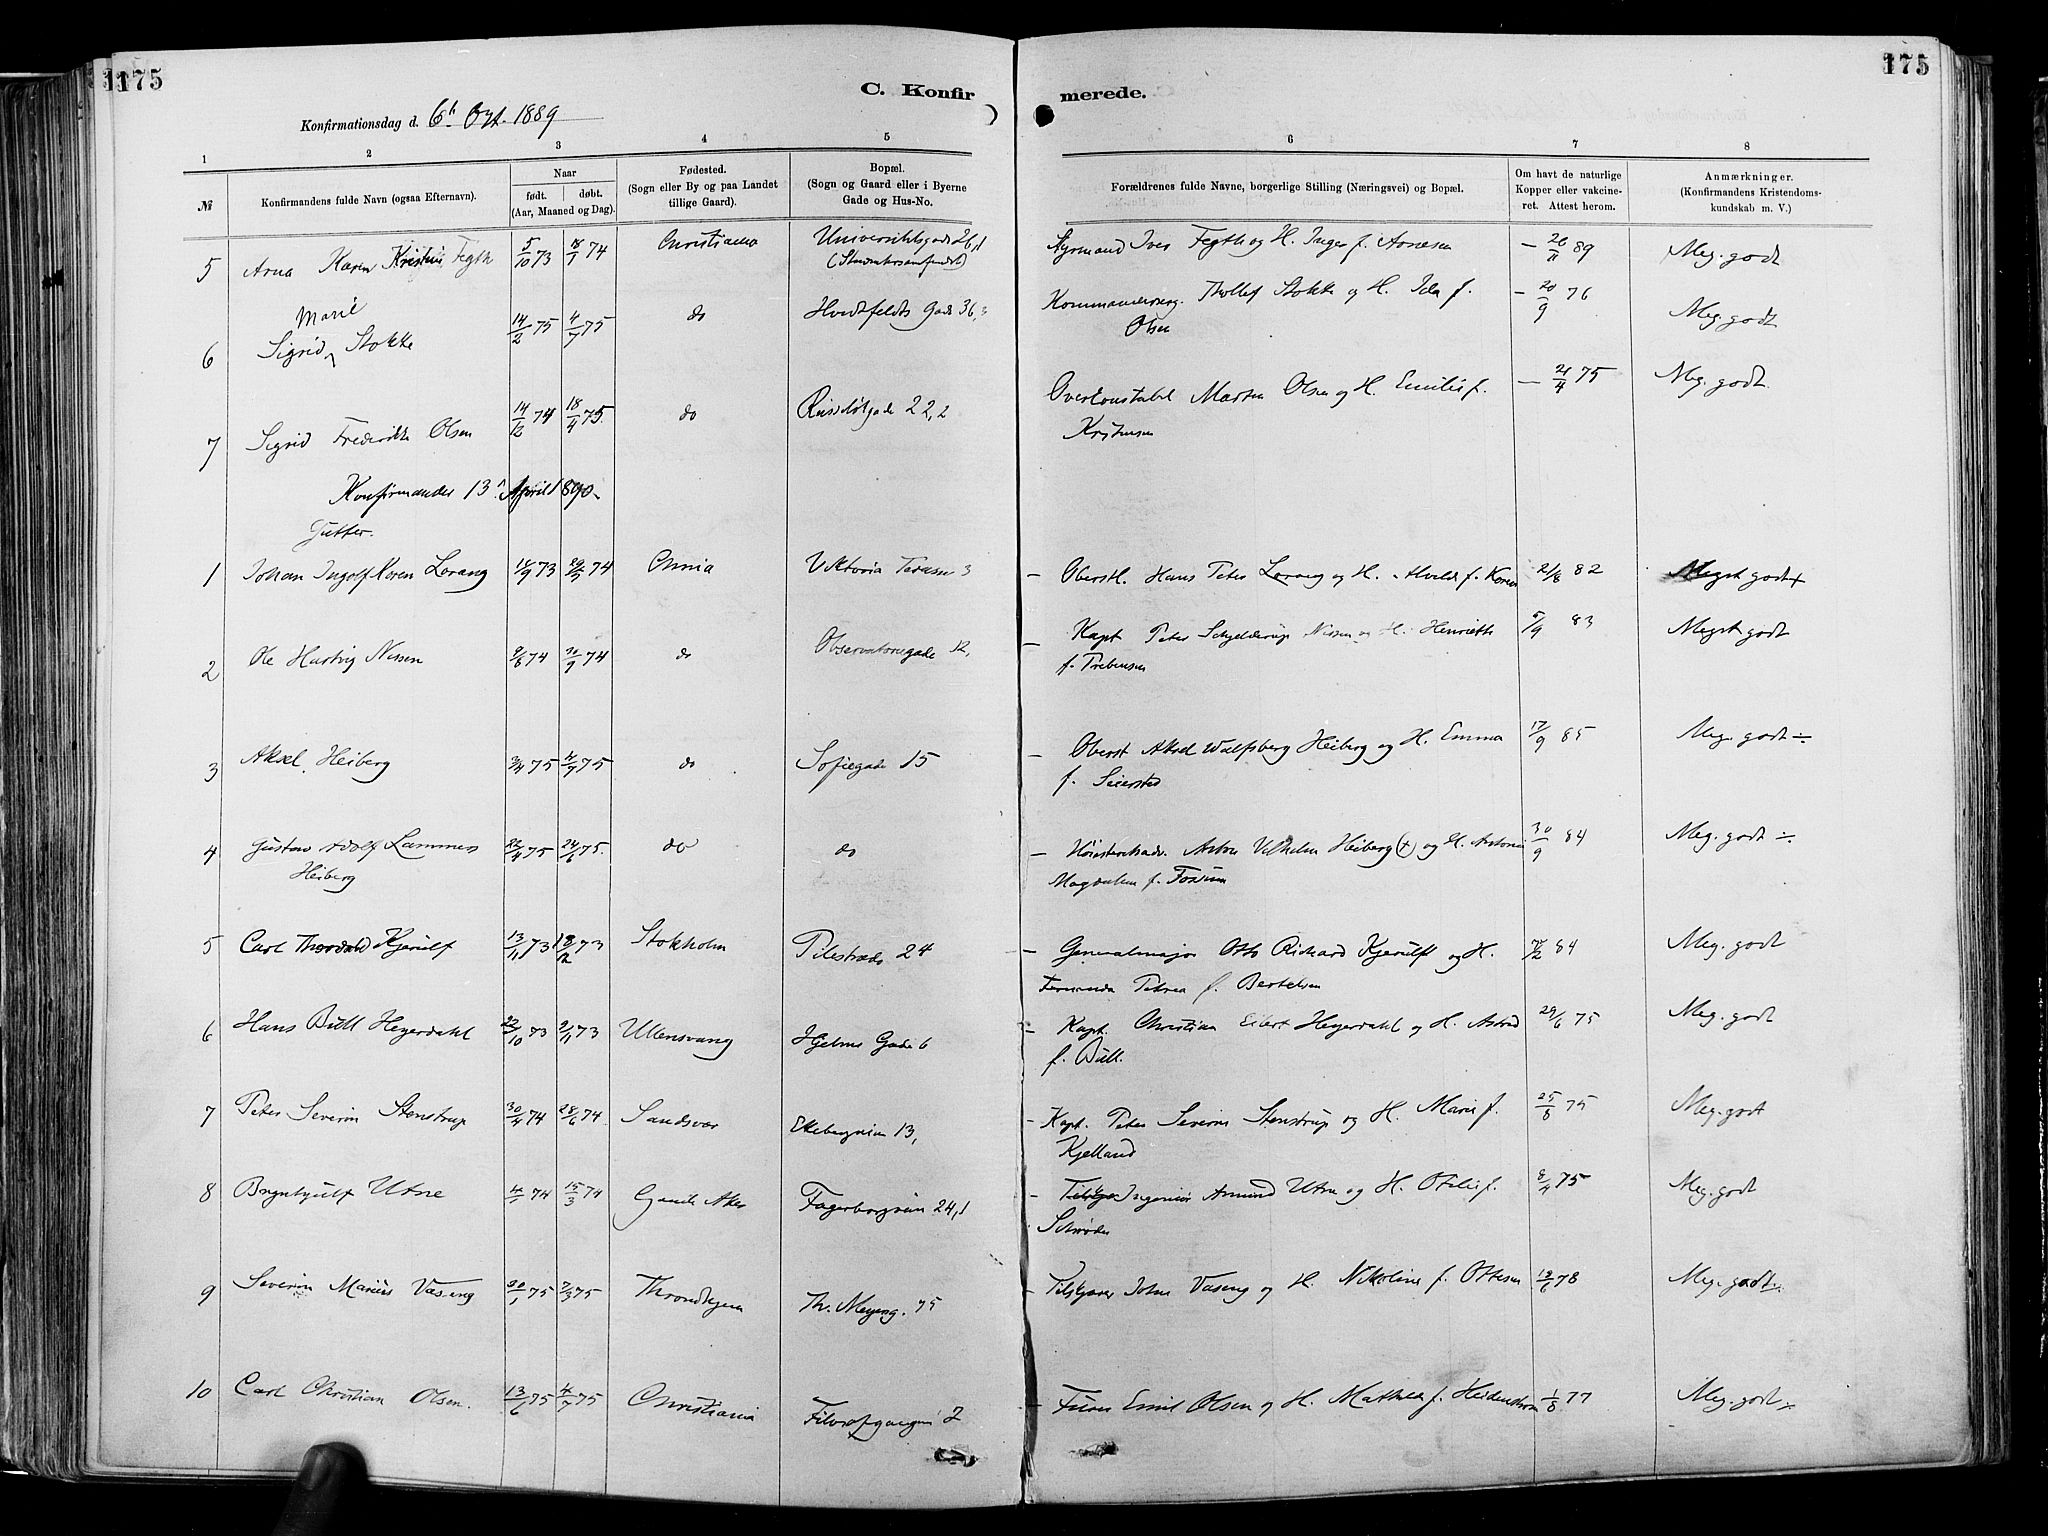 175
175
C. Konfir merede.
Konfirmationsdag d. 6t Oct. 1889
1 2 3 4 5 6 7 8
№
Konfirmandens fulde Navn (ogsaa Efternavn).
Naar
født. døbt.
(Aar, Maaned og Dag).
Fødested.
(Sogn eller By og paa Landet
tillige Gaard).
Bopæl.
(Sogn og Gaard eller i Byerne
Gade og Hus-No.
Forældrenes fulde Navne, borgerlige Stilling (Næringsvei) og Bopæl.
Om havt de naturlige
Kopper eller vakcine-
ret. Attest herom.
Anmærkninger.
(Konfirmandens Kristendoms-
kundskab m. V.)
5 Karen Kristine Fegth 5/10 73 74 Christiania Universitetsgade 26,1 Styrmand Iver Fegth og H. Inger f. Arnesen 89 Meg. godt
(Studentersamfundet)
Marie
6 Sigrid Stokke 14/2 75 4/7 75 do Hvidtfeldts Gade 36, Thollef Stokke og H. Ida f. — 20/9 76 Meg. godt
Olsen
7 Sigrid Frederikke Olsen 14/12 74 18/4 75. do 22,2 Overkonstabel Martin Olsen og H. Emilie f. — 21/4 75 Meg. godt
Kristensen
Konfirmander 13. April 1890.
Gutter.
1 Johan Ingolf Koren Lorang 73 74 Chnia Viktoria Terasse 3 — Oberstl. Hans Peter Lorang og H. f. Koren 21/8 82 Meget godt +
2 Ole Hartvig Nissen 74 74 do Observatoriegade 12, — Kapt Peter Schjelderup Nissen og H. Henriette 5/9 83 Meget godt
f. Trebensen
3 Aksel Heiberg 75 4/7 75 do Sofiegade 15 — Oberst Aksel Heiberg og H. Emma 17/9 85 Meg. godt ÷
f. Seiersted
4 Gustav Adolf Lammers 75 24/6 75. do do — Vilhelm Heiberg (+) og H. Antonie 30/9 84 Meg. godt ÷
Heiberg Magdalena f.
5 Carl Kjerulf 13/11 73 73 Stokholm Pilestræde 24 — Generalmajor Otto Richard Kjerulf og H. 84 Meg. godt
Petrea f. Bertelsen
6 Hans Bull Heyerdahl 22/10 73 9/11 73 Ullensvang Hjelms Gade 6 — Kapt. Christian Heyerdahl og H. Astrid 29/6 75 Meg. godt
f. Bull.
7 Peter Severin Stenstrup 30/4 74 28/6 74. Sandsvær Ekebergveien 13, — Kapt. Peter Severin Stenstrup og H. Marie f. 25/8 75 Meg. godt
Kjelland
8 Brynhjulf Utne 74 15/3 74 Aker Fagerborgveien 24,1 — Ingeniør Amund Utne og H. Otilie f. 75 Meg. godt
Schrøder
9 Severin Marius Vaseng 75 75 Throndhjem Th. Meyersg. 75 — Tilskjærer Johan Vaseng og H. Nikoline f. Ottesen 78 Meg. godt ÷
10 Carl Christian Olsen. 13/6 75 4/7 75 Christiania Filosofgangen 2 — Emil Olsen og H. Mathilde f. Heidenstrøm 1/8 77 Meg. godt